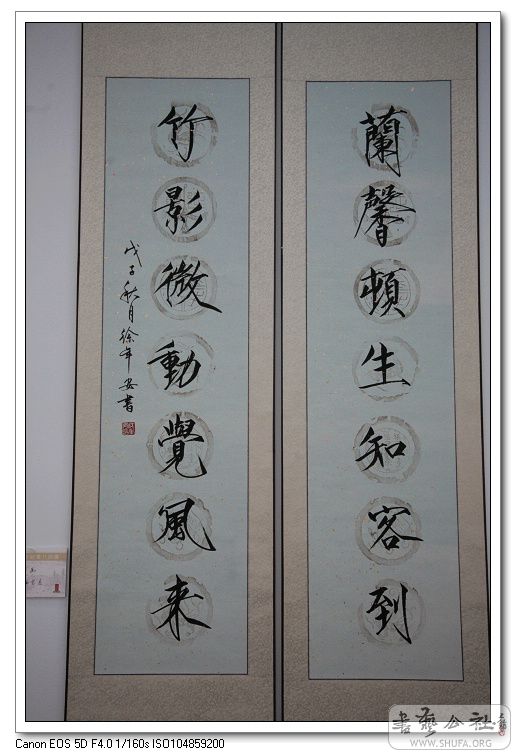 蘭馨頓生知客到
竹影微動覺風来
戊子秋月徐年安書
書藝公社
WWW.SHUFA.ORG
Canon EOS 5D F4.0 1/160s ISO104859200